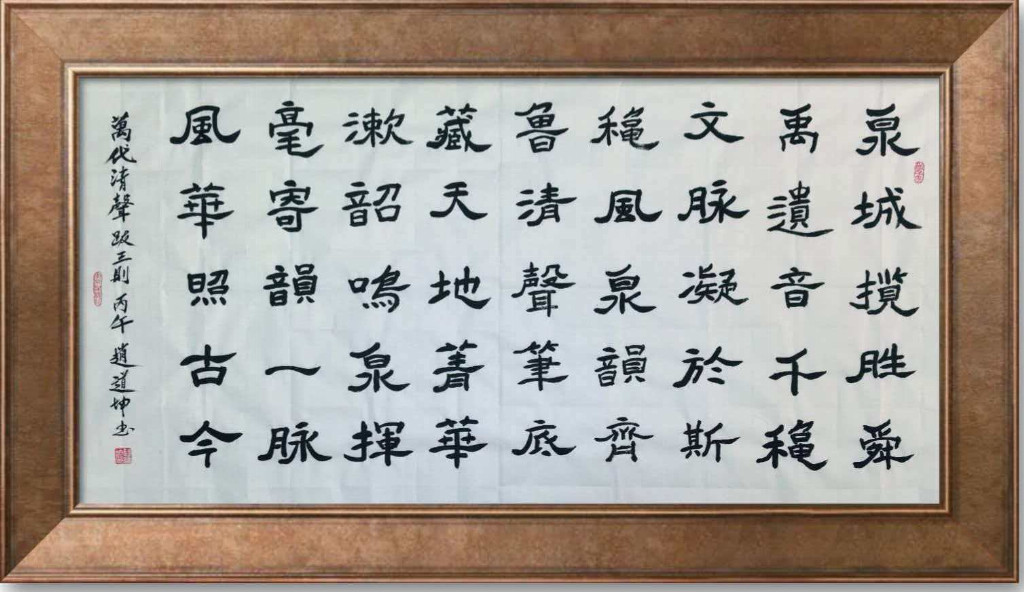 泉城攬胜舜
禹遺音千穐
文脉凝於斯
穐風泉韻齊
魯清聲筆底
藏天地菁華
漱韶鳴泉揮
毫寄韻一脉
風華照古今
萬代清聲跋三則 丙午 趙道坤书